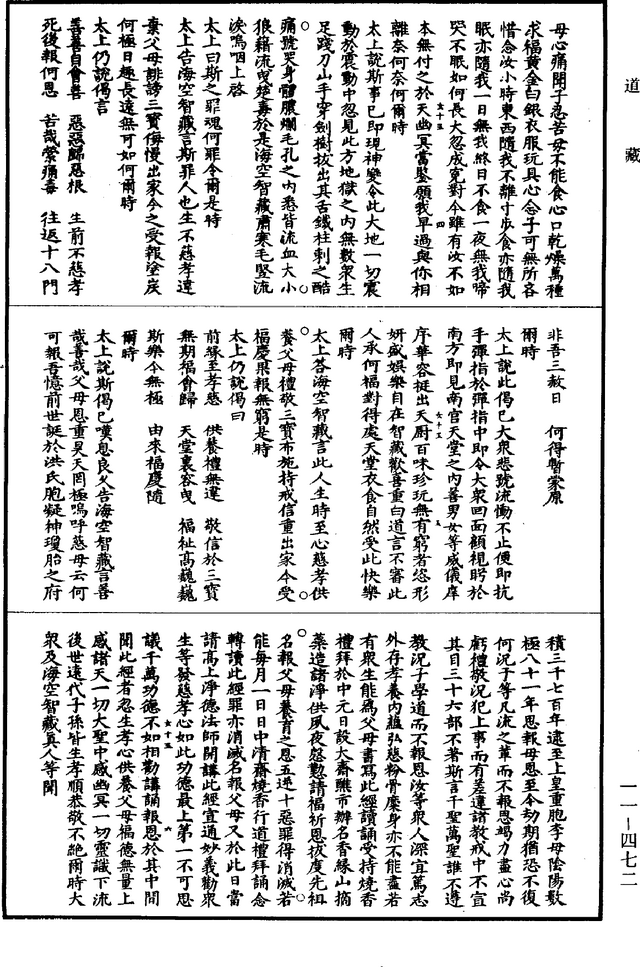 道藏
母心痛聞子忍苦母不能食心口乾燥萬種
求福黃金白銀衣服玩具心念子可無所吝
惜念汝小時東西隨我不離寸步食亦隨我
眠亦隨我一日無我終日不食一夜無我啼
哭不眠如何長大忽成寃對今雖有汝不如
女十五 四
本無付之於天幽冥當鑒願我早過與你相
離奈何奈何爾時
太上說斯事已即現神變令此大地一切震
動於震動中忽見此方地獄之內無數衆生
足踐刀山手穿劍樹拔出其舌鐵柱刺之酷
痛號哭身體膿爛毛孔之內悉皆流血大小
狼藉流曳楚毒於是海空智藏肅寒毛豎流
淚嗚咽上啓
太上曰斯之罪魂何罪令爾是時
太上告海空智藏言斯罪人也生不慈孝違
棄父母誹謗三寶侮慢出家今之受報塗炭
何極日趣長遠無可如何爾時
太上仍說偈言
善善自會喜 惡惡歸惡根 生前不慈孝
死後報何恩 苦哉縈痛毒 往返十八門
非吾三赦日 何得暫蒙原
爾時
太上說此偈已大衆悲號流慟不止便即抗
手彈指於彈指中即令大衆回面顧視眄於
南方即見南宮天堂之內善男女等威儀庠
女十五 五
序華容挺出天廚百味珍玩無有窮者恣形
妍盛娛樂自在智藏歡喜重白道言不審此
人承何福對得處天堂衣食自然受此快樂
爾時
太上荅海空智藏言此人生時至心慈孝供
養父母禮敬三寶布施持戒信重出家今受
福慶果報無窮是時
太上仍說偈曰
前緣至孝慈 供養禮無違 敬信於三寶
無期福會歸 天堂裏容曳 福祉高巍巍
斯樂今無極 由來福慶隨
爾時
太上說斯偈已嘆息良久告海空智藏言善
哉善哉父母恩重昊天罔極嗚呼慈母云何
可報吾憶前世誕於洪氏胞凝神瓊胎之府
積三千七百年逮至上皇重胞李母陰陽數
極八十一年思報母恩至今劫期猶恐不復
何況子等凡流之輩而不報恩竭力盡心尚
虧禮敬況犯上事而有差違諸教戒中不宣
其目三十六部不著斯言千聖萬聖誰不遵
教況子學道而不報恩汝等衆人深宜篤志
外存孝養內蘊弘慈粉骨糜身亦不能盡若
有衆生能為父母書寫此經讀誦受持燒香
禮拜於中元日設大齋熊市辦名香緣山摘
藥造諸淨供夙夜慇懃請福祈恩拔度先祖
名報父母養育之恩五逆十惡罪得消滅若
能每月一日日中清齋燒香行道禮拜誦念
轉讀此經罪亦消滅名報父母又於此日當
請高上淨德法師開講此經宣通妙義勸衆
生等發慈孝心如此功德最上第一不可思
女十五 六
議千萬功德不如相勸講誦報恩於其中間
聞此經者忽生孝心供養父母福德無量上
感諸天一切大聖中感幽冥一切靈識下流
後世遠代子孫皆生孝順恭敬不絕爾時大
衆及海空智藏真人等聞
一一—四七二